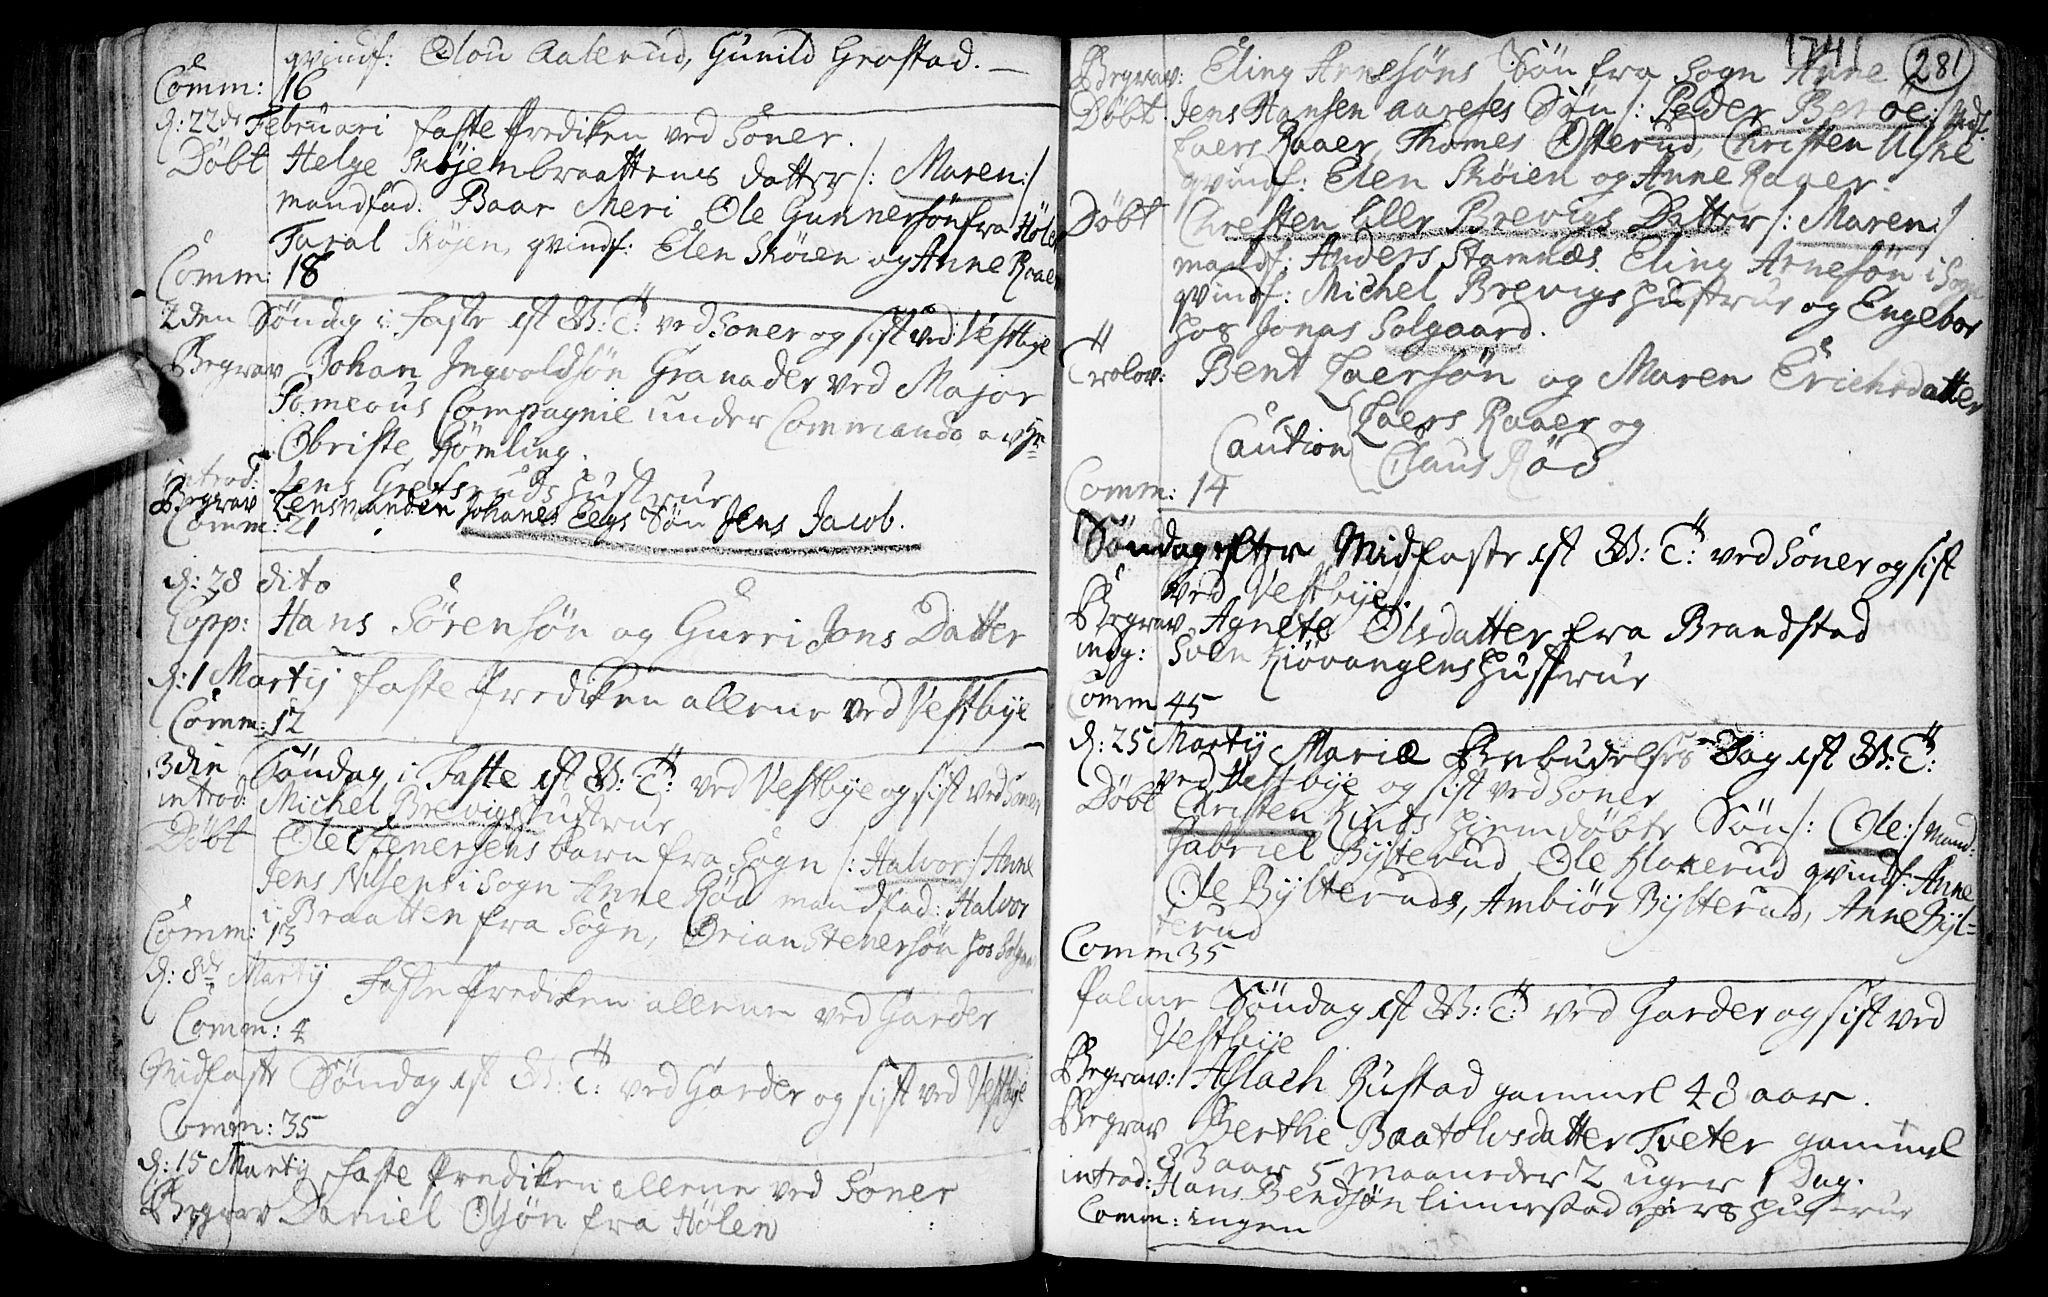 qvindf: Elou Aalerud, Gunild Grostad.
Comm: 16
d: 22de Februari faste Prediken ved Soner.
Døbt Helge Skøjenbraattens datter /: Maren :/
mandfad. Baar Meri Ole Gunnersøn fra Hølen
Taral Skøjen, qvindf: Elen Skøien og Anne Raaer
Comm: 18
2den Søndag i Faste est B: T: ved Soner og sist ved Vestbye
Begrav Johan Ingvoldsøn Granader ved Major
Pomeous Compagnie under Commando av Hr
Obriste Rømling.
introd: Jens Grefsruds Hustrue
Begrav Lensmanden Johanes Eegs Søn Jens Jacob.
Comm: 21
d: 28 dito
Copp: Hans Sørensøn og Gurri Jons Datter
d: 1 Martij faste Prediken allene ved Vestbye
Comm: 12
3die Søndag i Faste est B: T: ved Vestbye og sist ved Soner
introd: Michel Brevigs Hustrue
Døbt Ole Stenersens barn fra Sogn /: Halvor :/ Anne
Jens Nilsens i Sogn Anne Rød mandfad: Halvor
i Braatten fra Sogn, Ørian Stenersøn hos
Comm: 13
d: 8de Martij Faste Prediken allene ved Garder
Comm: 4
Midfaste Søndag est B: T: ved Garder og sist ved Vestbye
Comm: 35
d: 15 Martij Faste Prediken allene ved Soner
Begrav Daniel Olsøn fra Hølen
1741 281
Begrav: Eling Arnesøns Søn fra Sogn Arne
Døbt Jens Hansen Aareses Søn /: Peder Beroe :/ fadf.
Laers Raaer, Thomes Østerud, Christen
qvindf: Elen Skøien og Anne Raaer.
Døbt Christen Lille Brevigs Datter /: Maren :/
mandf: Anders Stamnæs. Eling Arnesøn i Sogn
qvindf: Michel Brevigs Hustrue og Engebor
hos Jonas Solgaard.
Trolov: Bent Laersøn og Maren Erichsdatter
Caution Laers Raaer og
Claus Rød
Comm: 14
Søndag efter Midfaste est B: T: ved Soner og sist
ved Vestbye.
Begrav Agnete Olsdatter fra Brandstad
indg: Sven Kiøvangens Hustrue
Comm 45
d: 25 Martij Mariæ Bebudelses Dag est B: T:
ved Vestbye og sist ved Soner
Døbt Christen Kinds hjemdøbte Søn /: Ole :/ mand:
Gabriel Bysterud, Ole Klokerud qvindf: Anne
Ole Bysteruds, Ambiør Bysterud, Anne Bys=
terud
Comm 35
Palme Søndag est B: T: ved Garder og sist ved
Vestbye
Begrav: Aslach Rustad gammel 48 aar.
Begrav Berthe Baatolvsdatter Tveter gammel
83 aar 5 maaneder 2 uger 1 Dag.
introd: Hans Bendsøn Linnestad Hustrue
Comm: ingen